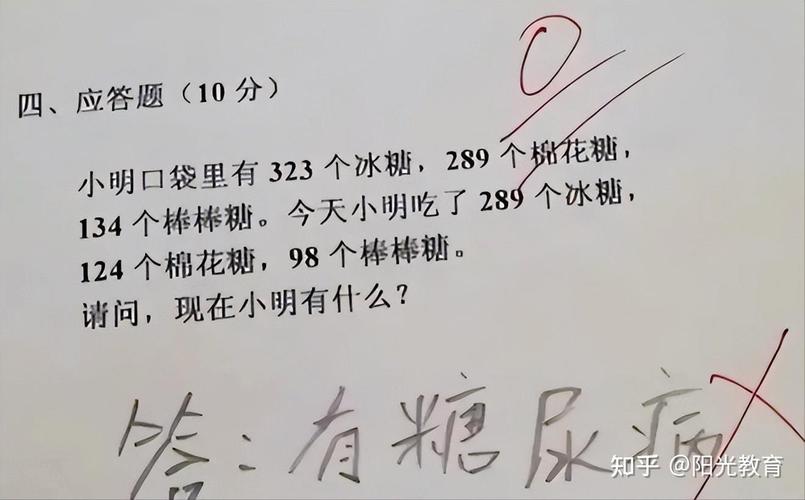 0
四、应答题（10 分）
小明口袋里有 323 个冰糖，289 个棉花糖，
134 个棒棒糖。今天小明吃了 289 个冰糖，
124 个棉花糖，98 个棒棒糖。
请问，现在小明有什么？
答：有糖尿病
知乎 @阳光教育